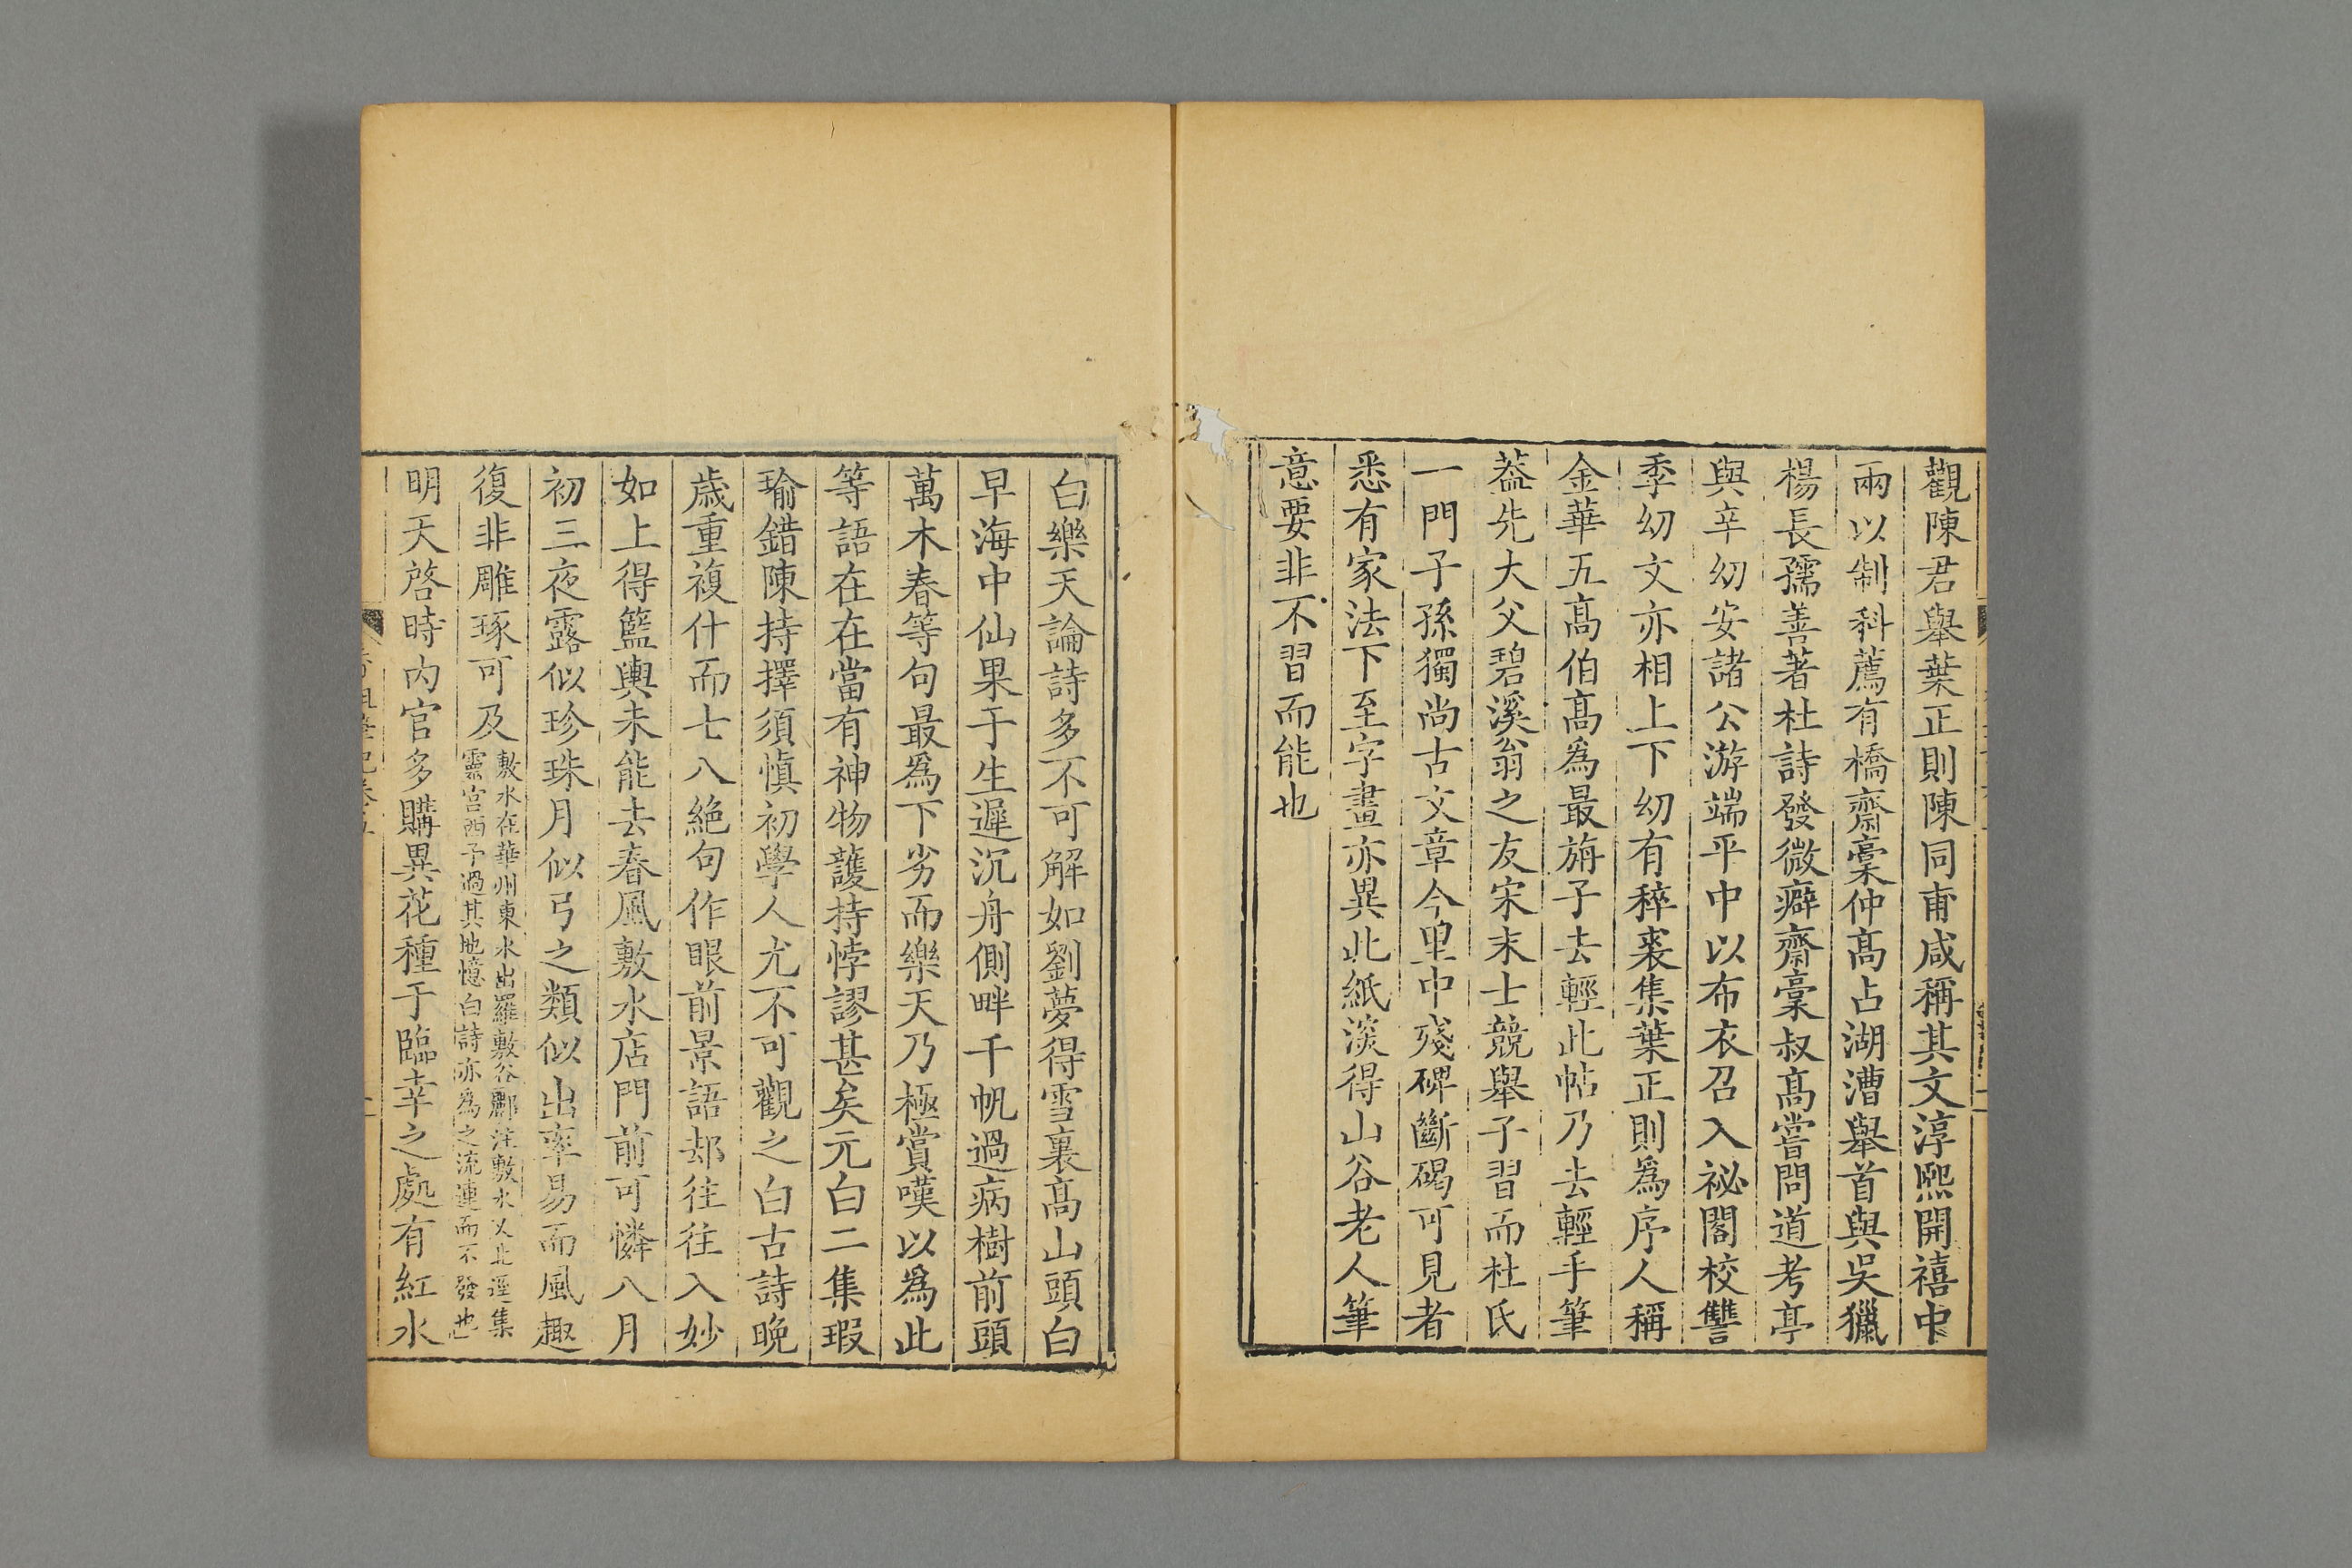 觀陳君舉葉正則陳同甫咸稱其文淳熙開禧中
兩以制科薦有橋齋稾仲高占湖漕舉首與吳獵
楊長孺善著杜詩發微癖齋稾叔高嘗問道考亭
與辛幼安諸公游端平中以布衣召入祕閣校讐
季幼文亦相上下幼有稡裘集葉正則爲序人稱
金華五高伯高爲最旃子去輕此帖乃去輕手筆
葢先大父碧溪翁之友宋末士競舉子習而杜氏
一門子孫獨尚古文章今里中殘碑斷碣可見者
悉有家法下至字畫亦異此紙淡得山谷老人筆
意要非不習而能也
白樂天論詩多不可解如劉夢得雪裏高山頭白
早海中仙果于生遲沉舟側畔千帆過病樹前頭
萬木春等句最爲下劣而樂天乃極賞嘆以爲此
等語在在當有神物護持悖謬甚矣元白二集瑕
瑜錯陳持擇須慎初學人尤不可觀之白古詩晚
歲重複什而七八絶句作眼前景語却往往入妙
如上得籃輿未能去春風敷水店門前可憐八月
初三夜露似珍珠月似弓之類似出率易而風趣
復非雕琢可及
敷水在華州東水出羅敷谷酈注敷水又北逕集
靈宮西予過其地憶白詩亦為之流連而不發也
明天啓時内官多購異花種于臨幸之處有紅水